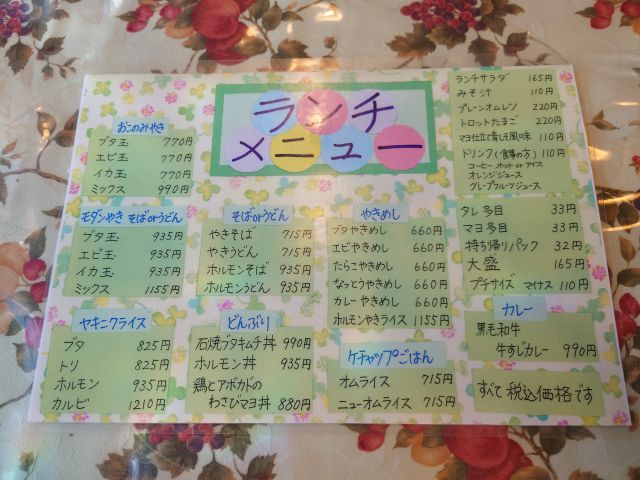 ランチ
メニュー
おこのみやき
ブタ玉 770円
エビ玉 770円
イカ玉 770円
ミックス 990円
モダンやき そばorうどん
ブタ玉 935円
エビ玉 935円
イカ玉 935円
ミックス 1155円
そばorうどん
やきそば 715円
やきうどん 715円
ホルモンそば 935円
ホルモンうどん 935円
やきめし
ブタやきめし 660円
エビやきめし 660円
たらこやきめし 660円
なっとうやきめし 660円
カレーやきめし 660円
ホルモンやきライス 1155円
ヤキニクライス
ブタ 825円
トリ 825円
ホルモン 935円
カルビ 1210円
どんぶり
石焼ブタキムチ丼 990円
ホルモン丼 935円
鶏とアボカドの
わさびマヨ丼 880円
ケチャップごはん
オムライス 715円
ニューオムライス 715円
ランチサラダ 165円
みそ汁 110円
プレーンオムレツ 220円
トロットたまご 220円
マヨ仕立て青じそ風味 110円
ドリンク(食事の方) 110円
コーヒー ホット or アイス
オレンジジュース
グレープフルーツジュース
タレ多目 33円
マヨ多目 33円
持ち帰りパック 32円
大盛 165円
プチサイズ マイナス 110円
カレー
黒毛和牛
牛すじカレー 990円
すべて税込価格です